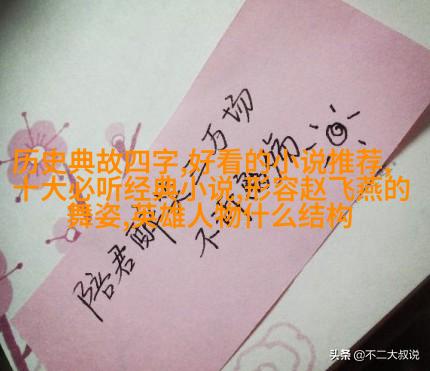 历史典故四字,好看的小说推荐,
十大必听经典小说,形容赵飞燕的
舞姿,英雄人物什么结构
陪君醉 万场
不
头条 @不二大叔说